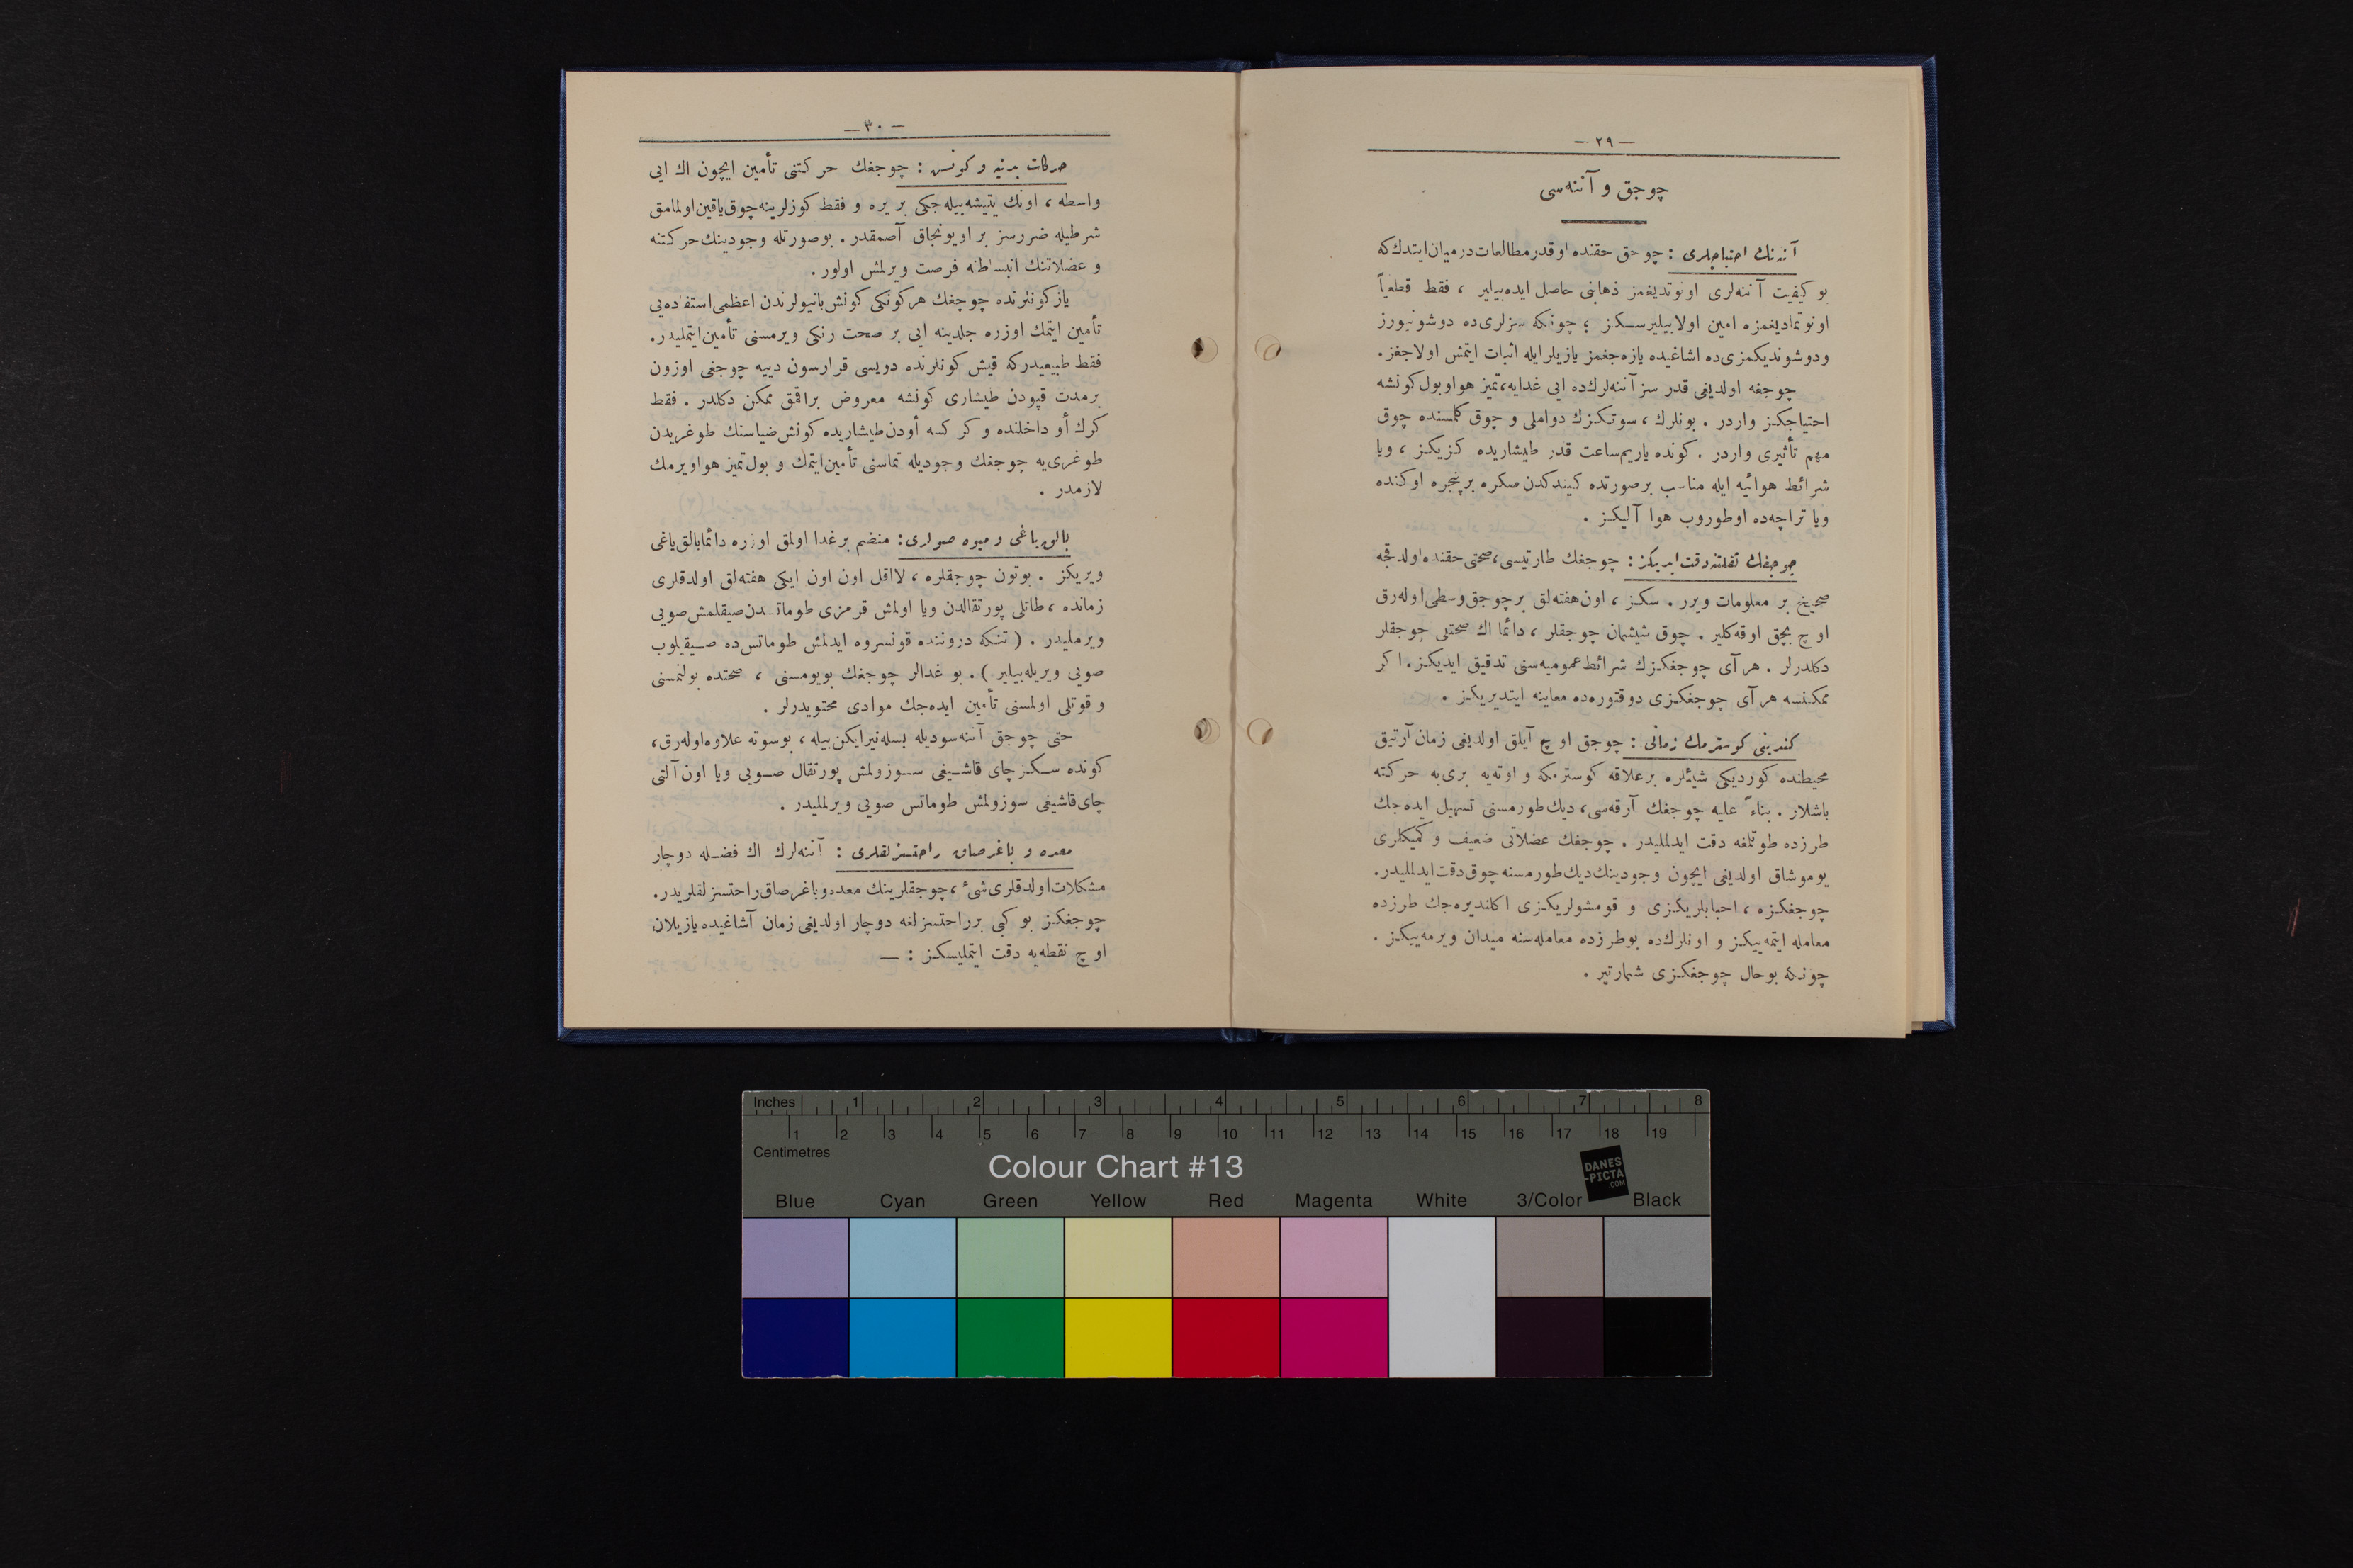 — ٢٩ —
چوجق و آننه‌سی
آننه‌نك احتياجلری : چوجق حقنده اوقدر مطالعات درميان ايتدك كه
بو كيفيت آننه‌لری اونوتديغمز ذهابنی حاصل ايده‌بيلير ، فقط قطعياً
اونوتماديغمزه امين اولابيليرسـكز ؛ چونكه سزلری‌ده دوشونيورز
ودوشونديكمزی‌ده اشاغيده يازه‌جغمز يازيلرايله اثبات ايتمش اولاجغز.
چوجغه اولديغی قدر سز آننه‌لرك‌ده ايی غدايه، تميز هواو بول كونشه
احتياجكز واردر . بونلرك ، سوتكزك دواملی و چوق كلمسنده چوق
مهم تأثيری واردر . كونده ياريم ساعت قدر طيشاريده كزيكز ، ويا
شرائط هوائيه ايله مناسب برصورتده كيندكدن صكره برپنجره اوكنده
ويا تراچه‌ده اوطوروب هوا آليكز .
چوجغك ثقلتنه دقت ايديكز : چوجغك طارتيسی، صحتی حقنده اولدقجه
صحيح بر معلومات ويرر . سكز ، اون هفته‌لق برچوجق وسطی اوله‌رق
اوچ بچق اوقه كلير . چوق شيشمان چوجقلر ، دائما اك صحتلی چوجقلر
دكلدرلر . هر آی چوجغكزك شرائط عموميه‌سنی تدقيق ايديكز. اكر
ممكنسه هر آی چوجغكزی دوقتوره‌ده معاينه ايتديريكز .
كندينی كوسترمك زمانی : چوجق اوچ آيلق اولديغی زمان آرتيق
محيطنده كورديكی شيئلره برعلاقه كوسترمكه و اوته‌يه بری‌يه حركته
باشلار . بناءً عليه چوجغك آرقه‌سی، ديك طورمسنی تسهيل ايده‌جك
طرزده طوتلغه دقت ايدلمليدر . چوجغك عضلاتی ضعيف و كميكلری
يوموشاق اولديغی ايچون وجودينك ديك طورمسنه چوق دقت ايدلمليدر.
چوجغكزه ، احبابلريكزی و قومشولريكزی اكلنديره‌جك طرزده
معامله ايتمه‌ييكز و اونلرك‌ده بوطرزده معامله‌سنه ميدان ويرمه‌ييكز .
چونكه بوحال چوجغكزی شمارتير .
— ٣٠ —
حركات بدنيه و كونش : چوجغك حركتنی تأمين ايچون اك ايی
واسطه ، اونك يتيشه‌بيله‌جكی بر يره و فقط كوزلرينه چوق ياقين اولمامق
شرطيله ضررسز بر اويونجاق آصمقدر . بوصورتله وجودينك حركتنه
و عضلاتنك انبساطنه فرصت ويرلمش اولور .
ياز كونلرنده چوجغك هركونكی كونش بانيولرندن اعظمی استفاده‌يی
تأمين ايتمك اوزره جلدينه ايی بر صحت رنكی ويرمسنی تأمين ايتمليدر.
فقط طبيعيدركه قيش كونلرنده دويسی قرارسون دييه چوجغی اوزون
برمدت قپودن طيشاری كونشه معروض براقمق ممكن دكلدر . فقط
كرك أو داخلنده و كركسه أودن طيشاريده كونش ضياسنك طوغريدن
طوغری‌يه چوجغك وجوديله تماسنی تأمين ايتمك و بول تميز هوا ويرمك
لازمدر .
بالق ياغی و ميوه صولری : منضم برغدا اولمق اوزره دائما بالق ياغی
ويريكز . بوتون چوجقلره ، لااقل اون اون ايكی هفته‌لق اولدقلری
زمانده ، طاتلی پورتقالدن ويا اولمش قرمزی طوماتـدن صيقلمش صويی
ويرمليدر . ( تنكه دروننده قونسروه ايدلمش طوماتس‌ده صـيقيلوب
صويی ويريله‌بيلير ) . بو غدالر چوجغك بويومسنی ، صحتده بولنمسنی
و قوتلی اولمسنی تأمين ايده‌جك موادی محتويدرلر .
حتی چوجق آننه سوديله بسله‌نيرايكن بيله ، بوسوته علاوه اوله‌رق،
كونده سـكـز چای قاشـيغی سـوزولمش پورتقال صـويی ويا اون آلتی
چای قاشيغی سوزولمش طوماتس صويی ويرلمليدر .
معده و باغرصاق راحتسزلقلری : آننه‌لرك اك فضـله دوچار
مشكلات اولدقلری شیٔ ، چوجقلرينك معده‌وباغرصاق راحتسزلقلريدر.
چوجغكز بو كبی برراحتسزلغه دوچار اولديغی زمان آشاغيده يازيلان
اوچ نقطه‌يه دقت ايتمليسكز : —
Inches 1 2 3 4 5 6 7 8
1 2 3 4 5 6 7 8 9 10 11 12 13 14 15 16 17 18 19
Centimetres
Colour Chart #13
DANES
-PICTA
.COM
Blue Cyan Green Yellow Red Magenta White 3/Color Black